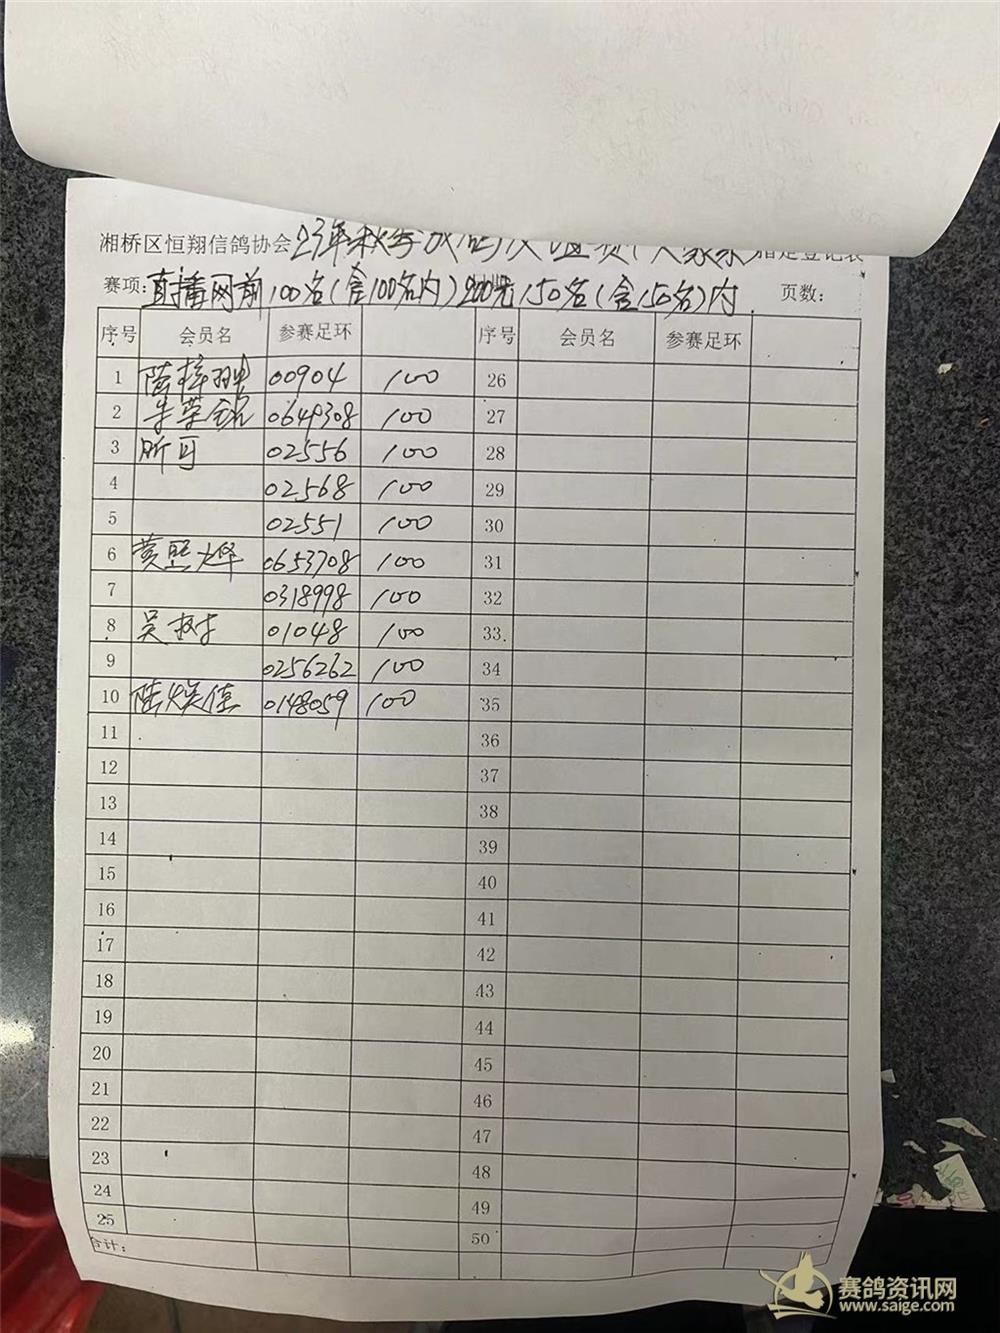 湘桥区恒翔信鸽协会23年秋季
赛项:直播网前100名(含100名内) 150名(含150名)内 页数:
序号 会员名 参赛足环 序号 会员名 参赛足环
1 00904 100 26
2 0649308 100 27
3 昕可 02556 100 28
4 02568 100 29
5 02551 100 30
6 黄熙烽 0653708 100 31
7 0318998 100 32
8 吴树 01048 100 33
9 0256262 100 34
10 0148059 100 35
11 36
12 37
13 38
14 39
15 40
16 41
17 42
18 43
19 44
20 45
21 46
22 47
23 48
24 49
25 50
合计:
赛鸽资讯网
www.saige.com